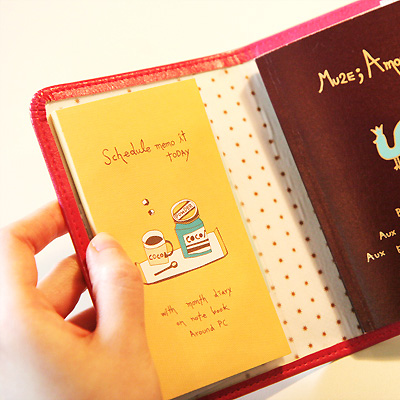 Schedule memo it
TODAY
COCOA
COCOA
with month diary
on note book
Around PC
Mu2E; Amo
Aux
Aux